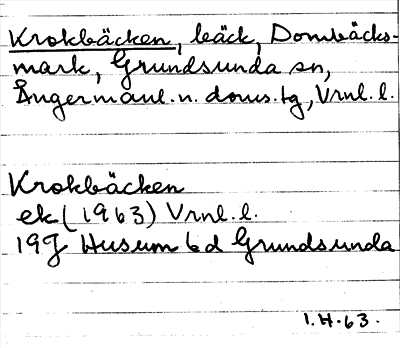 Krokbäcken, bäck, Dombäcks-
mark, Grundsunda sn,
Ångermanl. n. doms.tg, Vrnl. l.
Krokbäcken
ek (1963) Vrnl. l.
19J Husum 6d Grundsunda
I.H.63.